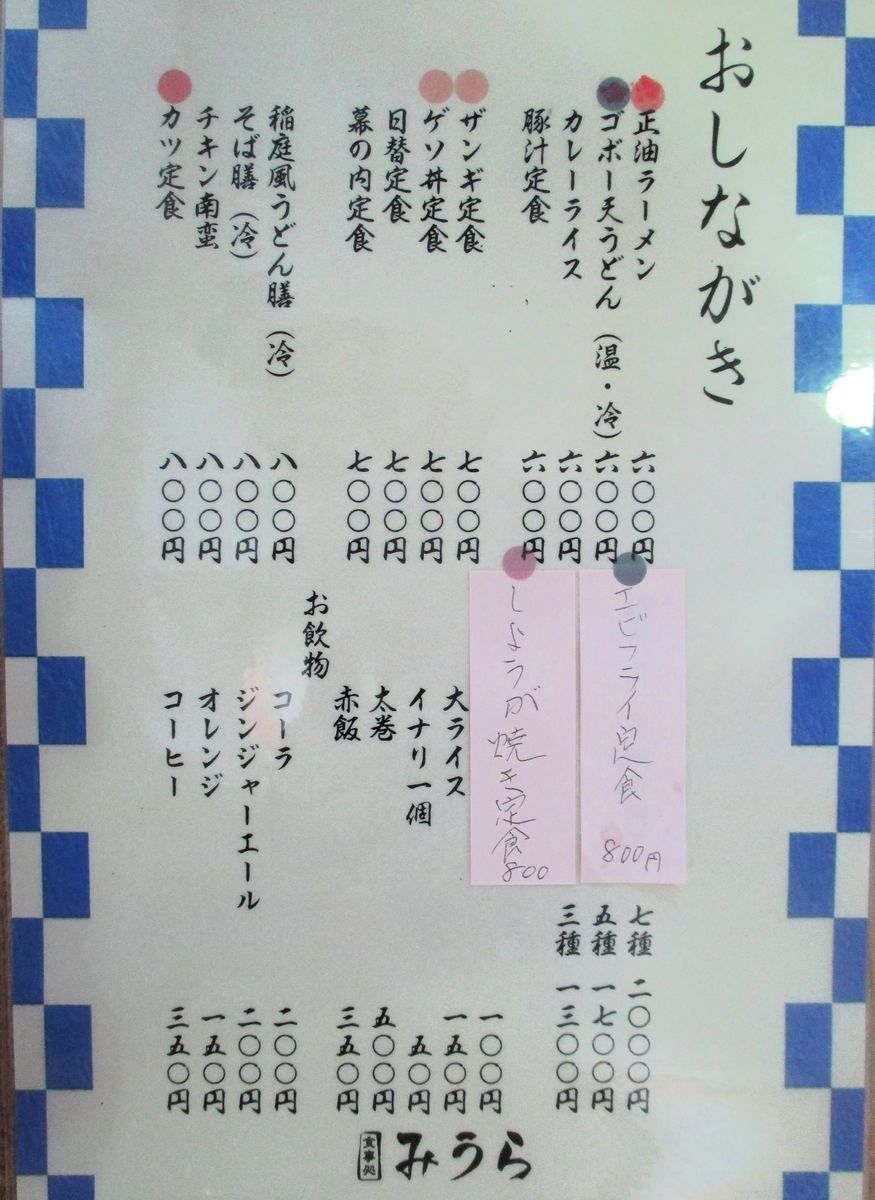 おしながき
正油ラーメン 六〇〇円
ゴボー天うどん（温・冷） 六〇〇円
カレーライス 六〇〇円
豚汁定食 六〇〇円
ザンギ定食 七〇〇円
ゲソ丼定食 七〇〇円
日替定食 七〇〇円
幕の内定食 七〇〇円
稲庭風うどん膳（冷） 八〇〇円
そば膳（冷） 八〇〇円
チキン南蛮 八〇〇円
カツ定食 八〇〇円
エビフライ定食 800円
しょうが焼き定食 800
七種 二〇〇〇円
五種 一七〇〇円
三種 一三〇〇円
一〇〇円
大ライス 一五〇円
イナリ一個 五〇円
太巻 五〇〇円
赤飯 三五〇円
お飲物
コーラ 二〇〇円
ジンジャーエール 二〇〇円
オレンジ 一五〇円
コーヒー 三五〇円
食事処 みうら